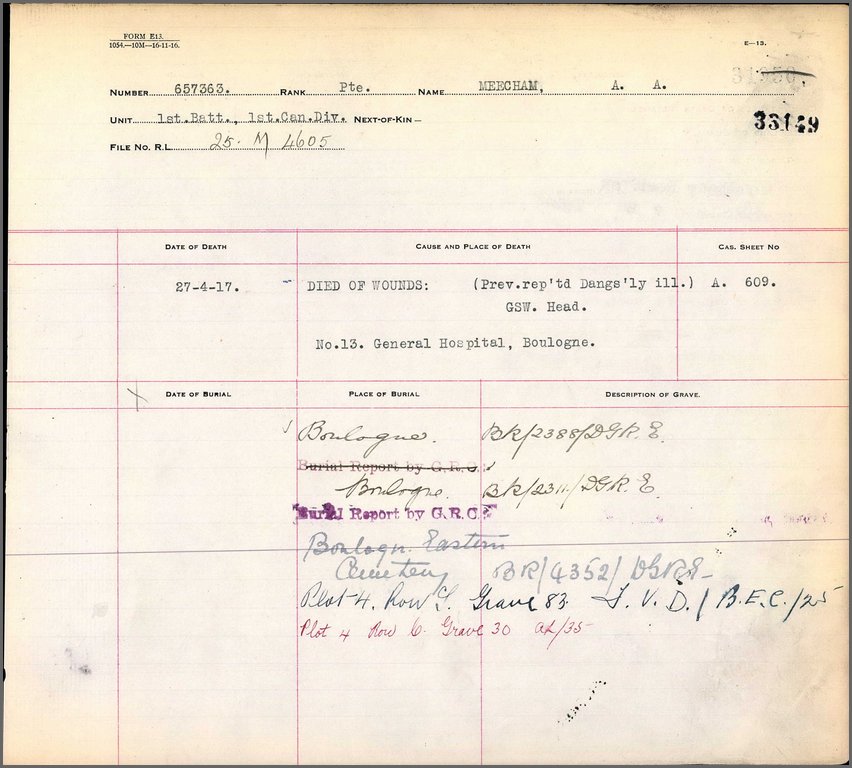 FORM E13.
1054.—10M—16-11-16.
E—13.
NUMBER 657363. RANK Pte. NAME MEECHAM, A. A.
33149
UNIT 1st.Batt., 1st.Can.Div. NEXT-OF-KIN—
FILE NO. R.L. 25. M 4605
DATE OF DEATH CAUSE AND PLACE OF DEATH CAS. SHEET NO
27-4-17. DIED OF WOUNDS: (Prev.rep'td Dangs'ly ill.) A. 609.
GSW. Head.
No.13. General Hospital, Boulogne.
DATE OF BURIAL PLACE OF BURIAL DESCRIPTION OF GRAVE.
Boulogne. BR/2388/DGR.E.
Burial Report by G.R.C.
Boulogne. BR/2311/DGR.E
Burial Report by G.R.C.
Boulogn. Eastern
Cemetery BR/4352/DGRE-
Plot 4. Row Grave 83. I.V.D./B.E.C./25
Plot 4 Row 6. Grave 30